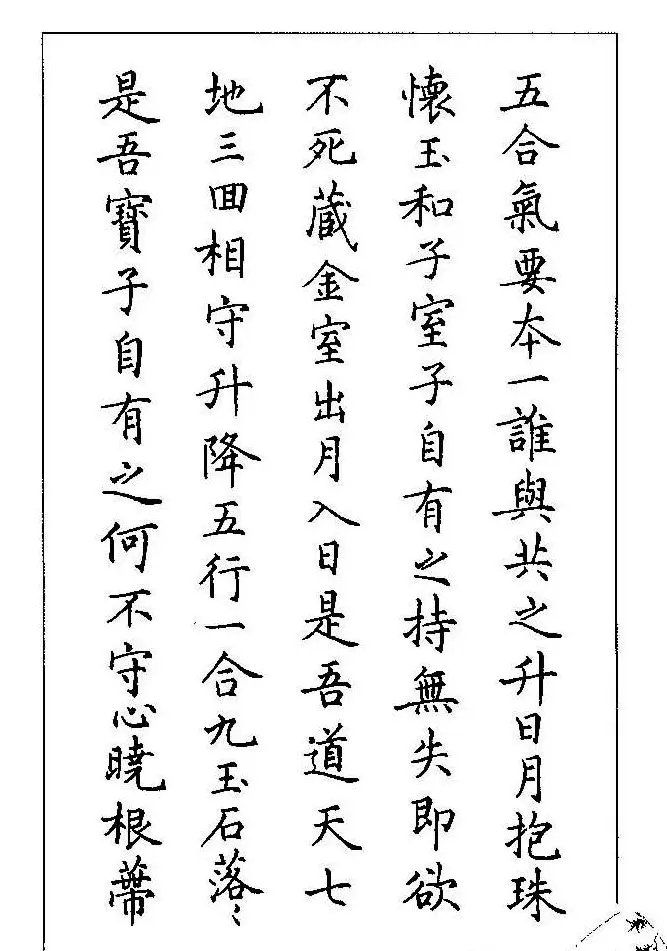 五合氣要本一誰與共之升日月抱珠
懷玉和子室子自有之持無失即欲
不死藏金室出月入日是吾道天七
地三回相守升降五行一合九玉石落〻
是吾寶子自有之何不守心曉根蔕